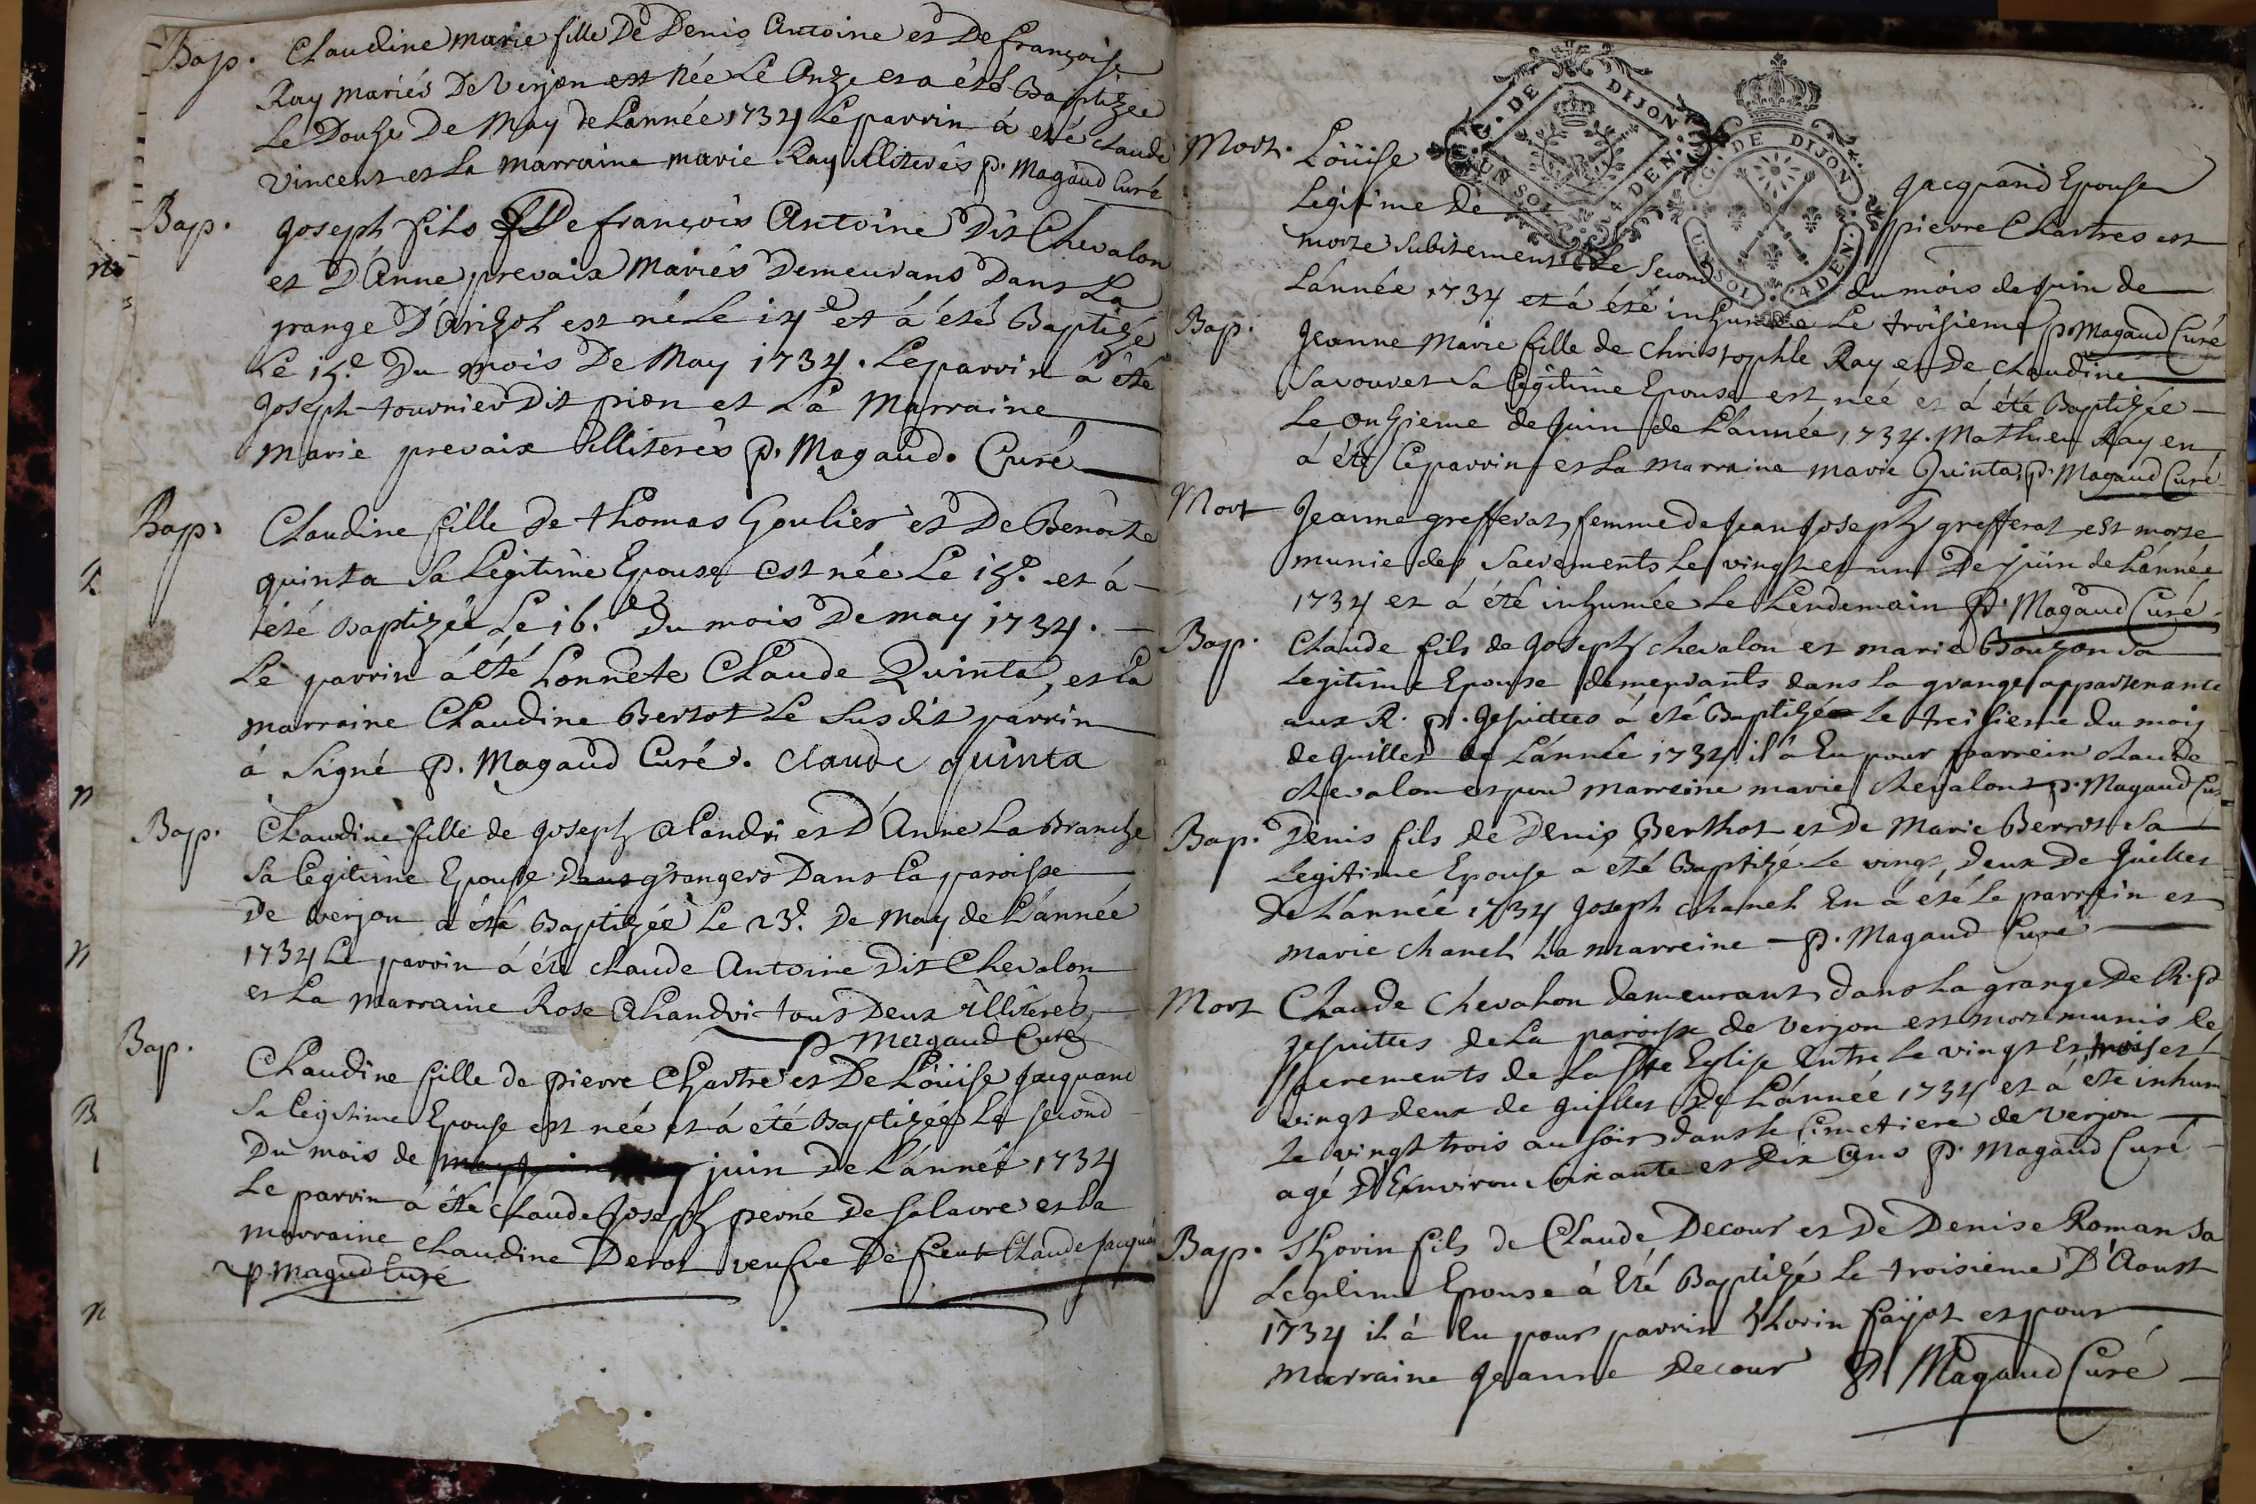 Bap. Claudine marie fille De Denis Antoine et De françoise
Ray mariés De Verjon est Née Le Onze et a été Baptizée
Le Douze De May de L'année 1734 Le parrin à été claude
Vincent et La marraine marie Ray illiterés p. Magaud Curé
Bap. Joseph fils De françois Antoine Dit Chevalon
et D'Anne prevaix Mariés Demeurans Dans La
grange D'arizol est né Le 14e et à été Baptizé
Le 15e Du mois De May 1734. Le parrin à été
Joseph tournier Dit pion et La Marraine
Marie prevaix illiterés p. Magaud. Curé
Bap. Claudine fille de thomas Goulier et De Benoite
quinta Sa Légitime Epouse est née Le 15e et à
été Baptizée Le 16.e Du mois De may 1734.
Le parrin à été honnete Claude Quinta, et la
marraine Claudine Bertot Le Susdit parrin
à Signé p. Magaud Curé. Claude quinta
Bap. Claudine fille de Joseph Alandri et D'Anne La Branche
Sa legitime Epouse grangers Dans la paroisse
De verjon a été Baptizée Le 23e De May de L'année
1734 Le parrin à été claude Antoine Dit Chevalon
et La Marraine Rose Alandri tous Deux illiterés
p Magaud Curé
Bap. Claudine fille de pierre Chartre et De Loüise Jacquand
Sa legitime Epouse est née et à été Baptizée Le second
Du mois de juin De L'année 1734
Le parrin à été claude Joseph perné De Salavre et la
marraine claudine Derot veufve De feut Claude Jacquand
p Magaud Curé
G. DE DIJON
UN SOL 4 DEN.
G. DE DIJON
UN SOL 4 DEN
Mort. Loüise Jacquand Epouse
Legitime De pierre Chartres est
morte Subitement Le Second du mois de juin de
L'année 1734 et à été inhumée Le troisieme p. Magaud Curé
Bap. Jeanne Marie fille de christophle Ray et De claudine
Savouret Sa legitime Epouse est née et à été Baptizée
Le Onzieme de Juin de L'année 1734. Mathieu Ray en
à été Le parrin et La marraine marie Quinta p. Magaud Curé
Mort Jeanne grefferat femme de Jean Joseph grefferat est morte
munie des Sacrements Le vingt et un De juin de L'année
1734 et à été inhumée Le Lendemain p. Magaud Curé.
Bap. Claude fils de Joseph chevalon et marie Bouzon Sa
Legitime Epouse demeurants dans La grange appartenante
aux R. p. Jesuittes à été Baptizé Le treisieme du mois
de Juillet de L'année 1734 il à Eu pour parrein claude
chevalon et pour marreine marie chevalon p. Magaud Cur
Bap. Denis fils de Denis Berthot et De Marie Berrot Sa
Legitime Epouse a été Baptizé Le vingt deux De Juillet
De L'année 1734 Joseph chanel En à été Le parrein et
marie chanel La marreine p. Magaud Curé
Mort Claude Chevalon demeurant dans La grange De R. p
Jesuittes de La paroisse de Verjon est mort munis les
sacrements de La Ste Eglise Entre Le vingt et
vingt deux de Juillet De L'année 1734 et à été inhum
Le vingt trois au soir dans le Cimetiere de Verjon
agé D'Environ Soixante et Dix Ans p. Magaud Curé
Bap. Thorin fils de Claude Decour et De Denise Roman Sa
Legitime Epouse à Eté Baptizé Le troisieme D'Aoust
1734 il à Eu pour parrin thorin faijot et pour
marraine Jeanne Decour p. Magaud Curé